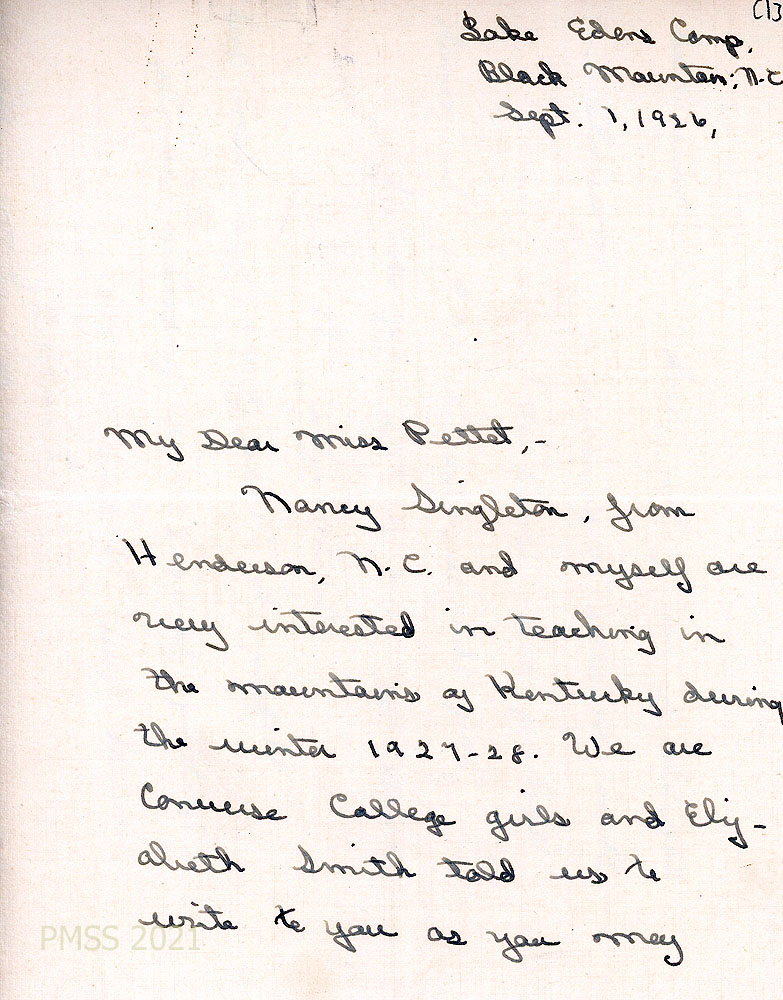 (1)
Lake Edens Camp,
Black Mountain, N.C
Sept. 1, 1926,
My Dear Miss Pettet,-
Nancy Singleton, from
Henderson, N.C. and myself are
very interested in teaching in
the mountains of Kentucky during
the winter 1927-28. We are
Converse College girls and Eliz-
abeth Smith told us to
write to you as you may
PMSS 2021